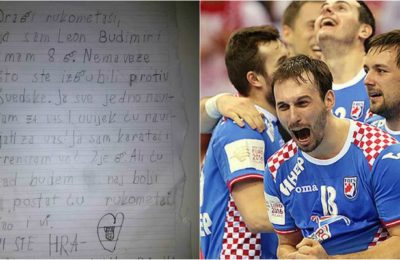 Dragi rukometaši,
ja sam Leon Budimir i
imam 8 g. Nema veze
što ste izgubili protiv
Švedske. Ja sve jedno navi-
jam za vas i uvijek ću navi-
jati za vas! Ja sam karataš i
treniram već
Ali ću
kad budem naj bolji
postat ću rukometaš
kao i vi.
VI STE HRA-
INEP
roma
18
2016